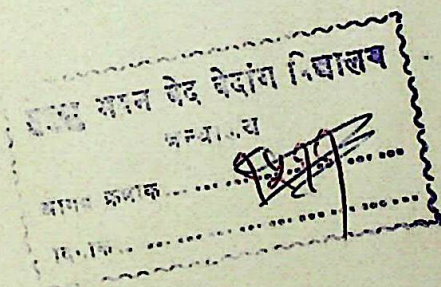 भवन वेद वेदांग विद्यालय
ग्रन्थालय
आगत क्रमांक
दिनांक